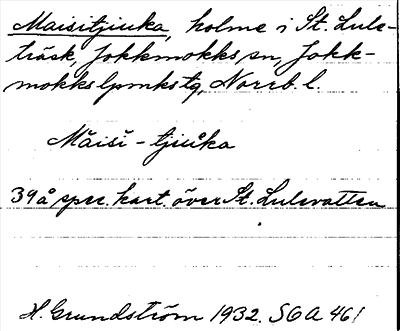 Maisitjiuka, holme i St. Lule-
träsk, Jokkmokks sn, Jokk-
mokks lpmkstg, Norrb. l.
Măisĭ - tjiŭka
39 å spec. kart. över St. Lulevatten
H. Grundström 1932. SOA 461